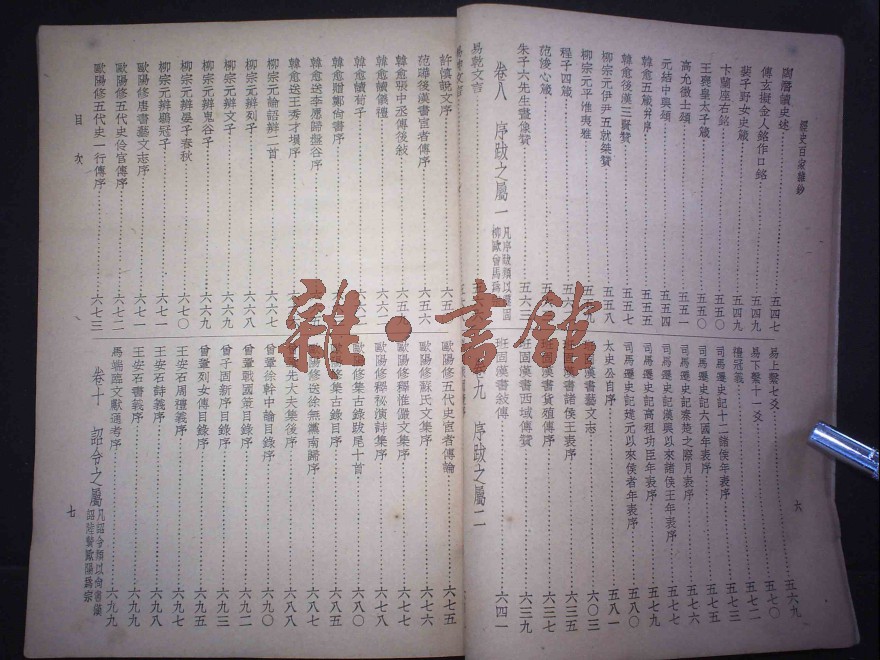 經史百家雜鈔
六
陶潛讀史述五四七
傅玄擬金人銘作口銘
裴子野女史箴五四九
卞蘭座右銘五四九
王襃皇太子箴五五〇
高允徵士頌五五一
元結中興頌五五四
韓愈五箴并序五五五
韓愈後漢三賢贊五五七
柳宗元伊尹五就桀贊五五八
柳宗元平淮夷雅
程子四箴
范浚心箴
朱子六先生畫像贊五六三
卷八 序跋之屬一
易乾文言
易上繫七爻五六九
易下繫十一爻五七〇
禮冠義五七二
司馬遷史記十二諸侯年表序五七三
司馬遷史記六國年表序五七五
司馬遷史記秦楚之際月表序五七六
司馬遷史記漢興以來諸侯王年表序五七七
司馬遷史記高祖功臣年表序五七九
司馬遷史記建元以來侯者年表序五八〇
太史公自序五八一
漢書藝文志六〇三
漢書諸侯王表序六三五
漢書貨殖傳序六三七
班固漢書西域傳贊六三九
班固漢書敘傳六四一
九 序跋之屬二
許愼說文序
范曄後漢書宦者傳序六五六
韓愈張中丞傳後敘六五九
韓愈讀儀禮
韓愈讀荀子
韓愈贈鄭尚書序
韓愈送李愿歸盤谷序
韓愈送王秀才塤序
柳宗元論語辯二首六六七
柳宗元辯列子六六八
柳宗元辯文子六六九
柳宗元辯鬼谷子六六九
柳宗元辯晏子春秋六七〇
柳宗元辯鶡冠子六七一
歐陽修唐書藝文志序六七一
歐陽修五代史伶官傳序六七二
歐陽修五代史一行傳序六七三
歐陽修五代史宦者傳論六七五
歐陽修蘇氏文集序六七六
歐陽修釋惟儼文集序六七七
歐陽修釋祕演詩集序六七八
歐陽修集古錄跋尾十首六八〇
修集古錄目序六八五
歐陽修送徐無黨南歸序六八七
先大夫集後序六八八
曾鞏徐幹中論目錄序六九〇
曾鞏戰國策目錄序六九二
曾子固新序目錄序六九三
曾鞏列女傳目錄序六九五
王安石周禮義序六九七
王安石詩義序六九八
王安石書義序六九九
馬端臨文獻通考序六九九
卷十 詔令之屬
凡詔令類以尚書儀
詔陸贄歐陽爲宗
目次
七
雜·書館